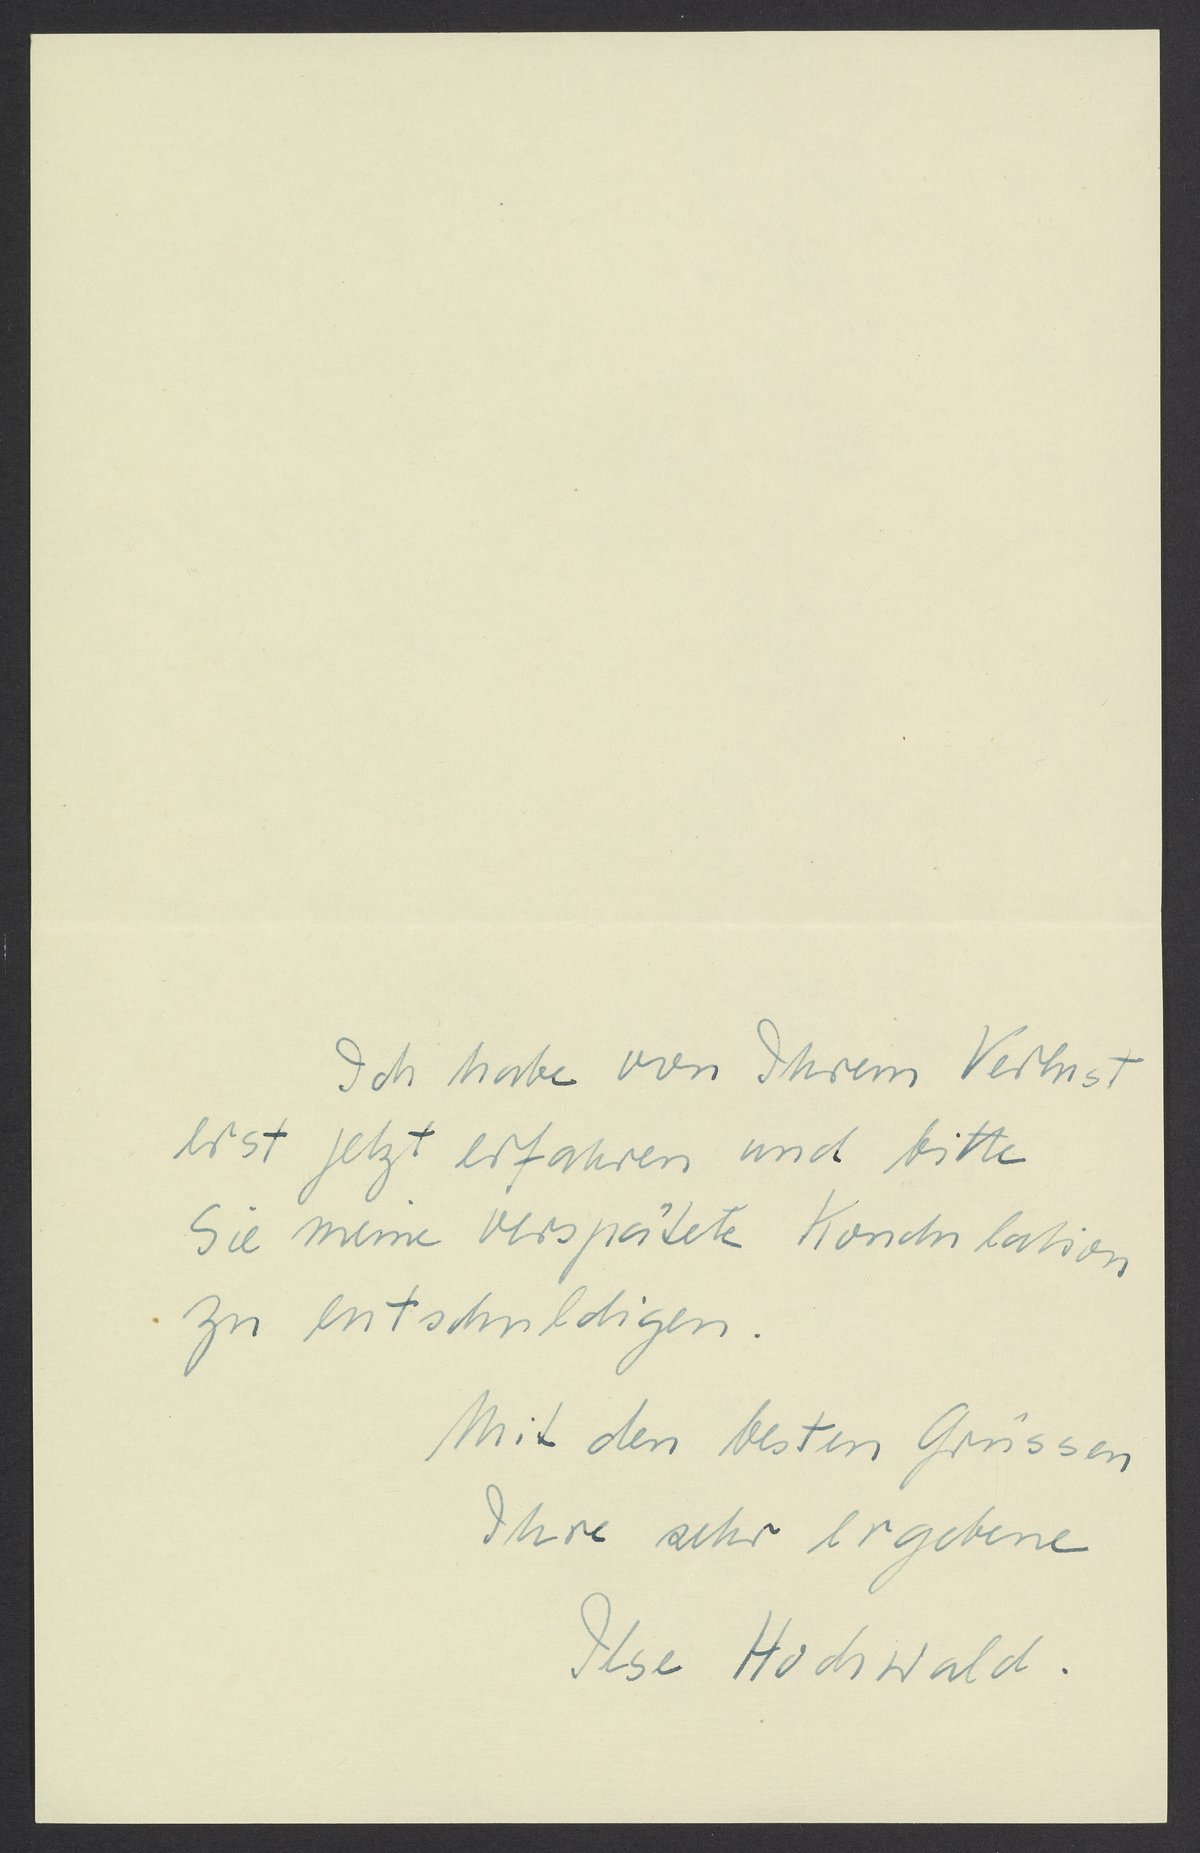 Ich habe von Ihrem Verlust
erst jetzt erfahren und bitte
Sie meine verspätete Kondulation
zu entschuldigen.
Mit den besten Grüssen
Ihre sehr ergebene
Ilse Hochwald.